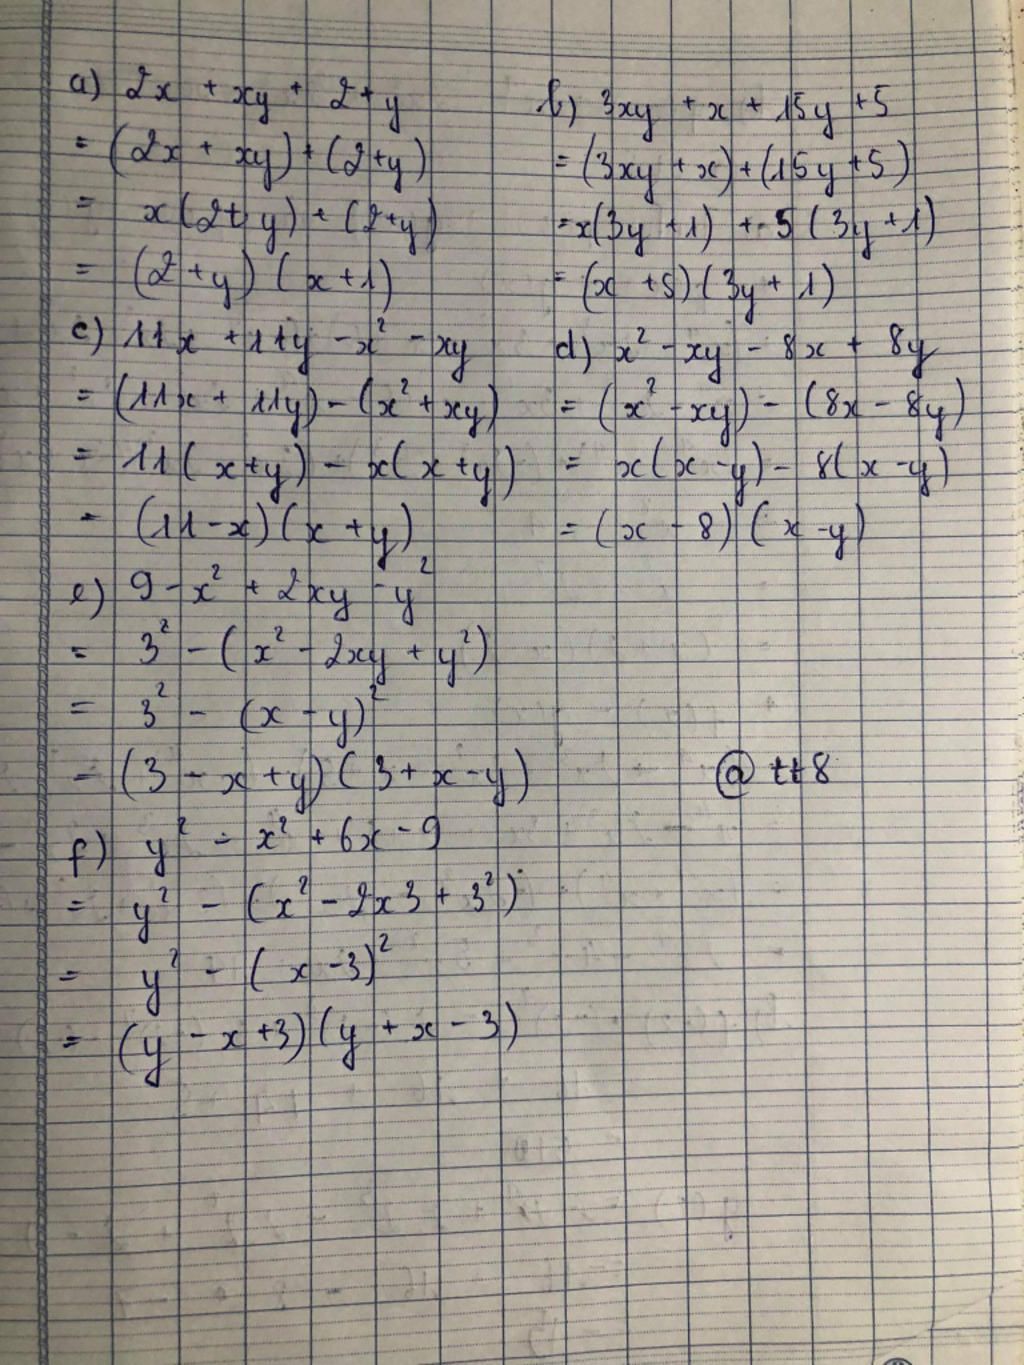 a) 2x + xy + 2 + y
= (2x + xy) + (2 + y)
= x(2 + y) + (2 + y)
= (2 + y) (x + 1)
b) 3xy + x + 15y + 5
= (3xy + x) + (15y + 5)
= x(3y + 1) + 5 (3y + 1)
= (x + 5) (3y + 1)
c) 11x + 11y - x² - xy
= (11x + 11y) - (x² + xy)
= 11 (x + y) - x(x + y)
= (11 - x) (x + y)
d) x² - xy - 8x + 8y
= (x² - xy) - (8x - 8y)
= x(x - y) - 8(x - y)
= (x - 8) (x - y)
e) 9 - x² + 2xy - y²
= 3² - (x² - 2xy + y²)
= 3² - (x - y)²
= (3 - x + y) (3 + x - y)
@ tt8
f) y² - x² + 6x - 9
= y² - (x² - 2x3 + 3²)
= y² - (x - 3)²
= (y - x + 3) (y + x - 3)